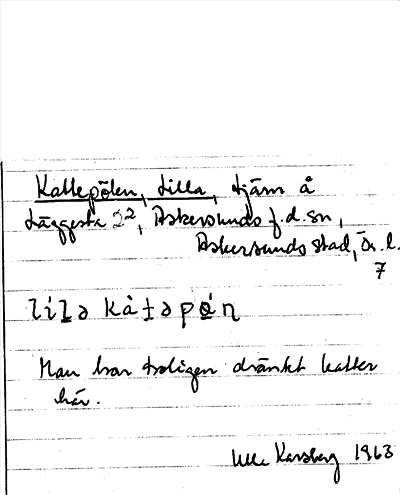 Kattepölen, Lilla, tjärn å
Läggesta 2², Askersunds f.d. sn,
Askersunds stad, Ör. l.
7
Man har troligen dränkt katter
här.
Ulla Karsberg 1963